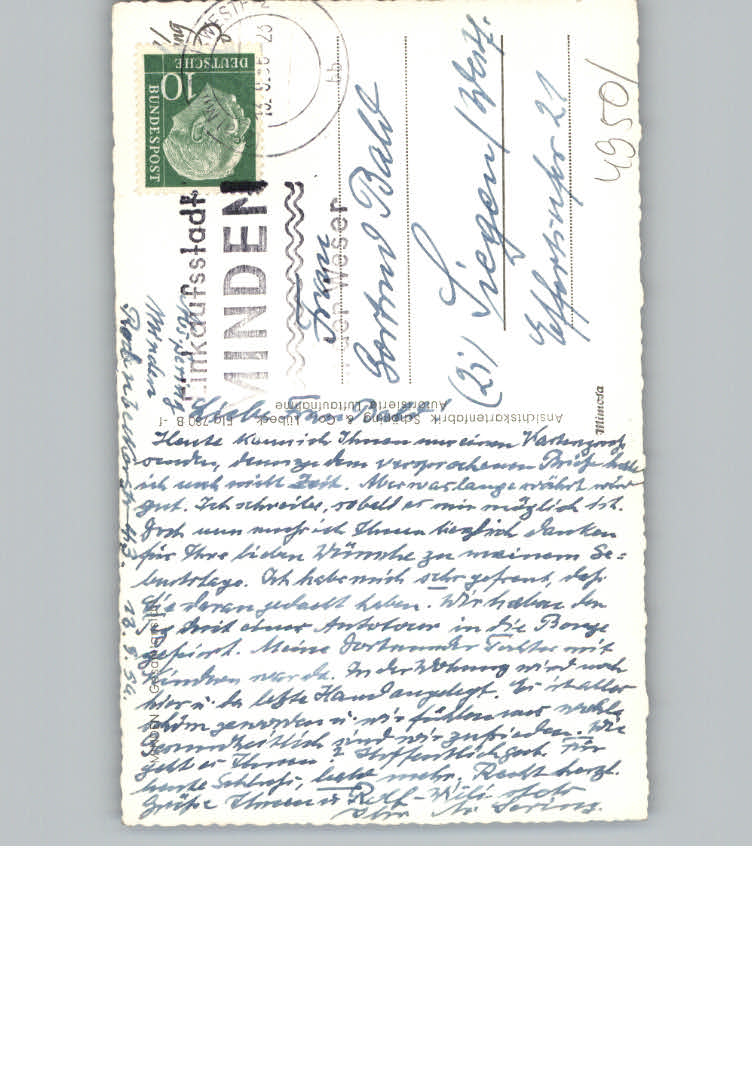 DEUTSCHE
BUNDESPOST
10
Einkaufsstadt
MINDEN
der Weser
4950/
Frau
Gertrud Bald
(21) Siegen/Westf.
21
Minden
13. 5. 54.
Ansichtskartenfabrik Schöning & Co., Lübeck
Autorisierte Luftaufnahme
Mimosa
MINDEN
Liebe Frau Bald!
Heute kann ich Ihnen nur einen Kartengruß
senden, denn zu dem versprochenen Brief habe
ich noch nicht Zeit. Aber was lange währt wird
gut. Ich schreibe, sobald es mir möglich ist.
Doch nun muß ich Ihnen herzlich danken
für Ihre lieben Wünsche zu meinem Ge=
burtstage. Ich habe mich sehr gefreut, daß
Sie daran gedacht haben. Wir haben den
Tag mit einer Autotour in die Berge
gefeiert. Meine Dortmunder Tochter mit
Kindern war da. In der Wohnung wird noch
hier u. da letzte Hand angelegt. Es ist alles
schön geworden u. wir fühlen uns wohl.
Gesundheitlich sind wir zufrieden. Wie
geht es Ihnen? Hoffentlich gut. Für
heute Schluß, bald mehr. Recht herzl.
Grüße Ihnen u.
Ihre